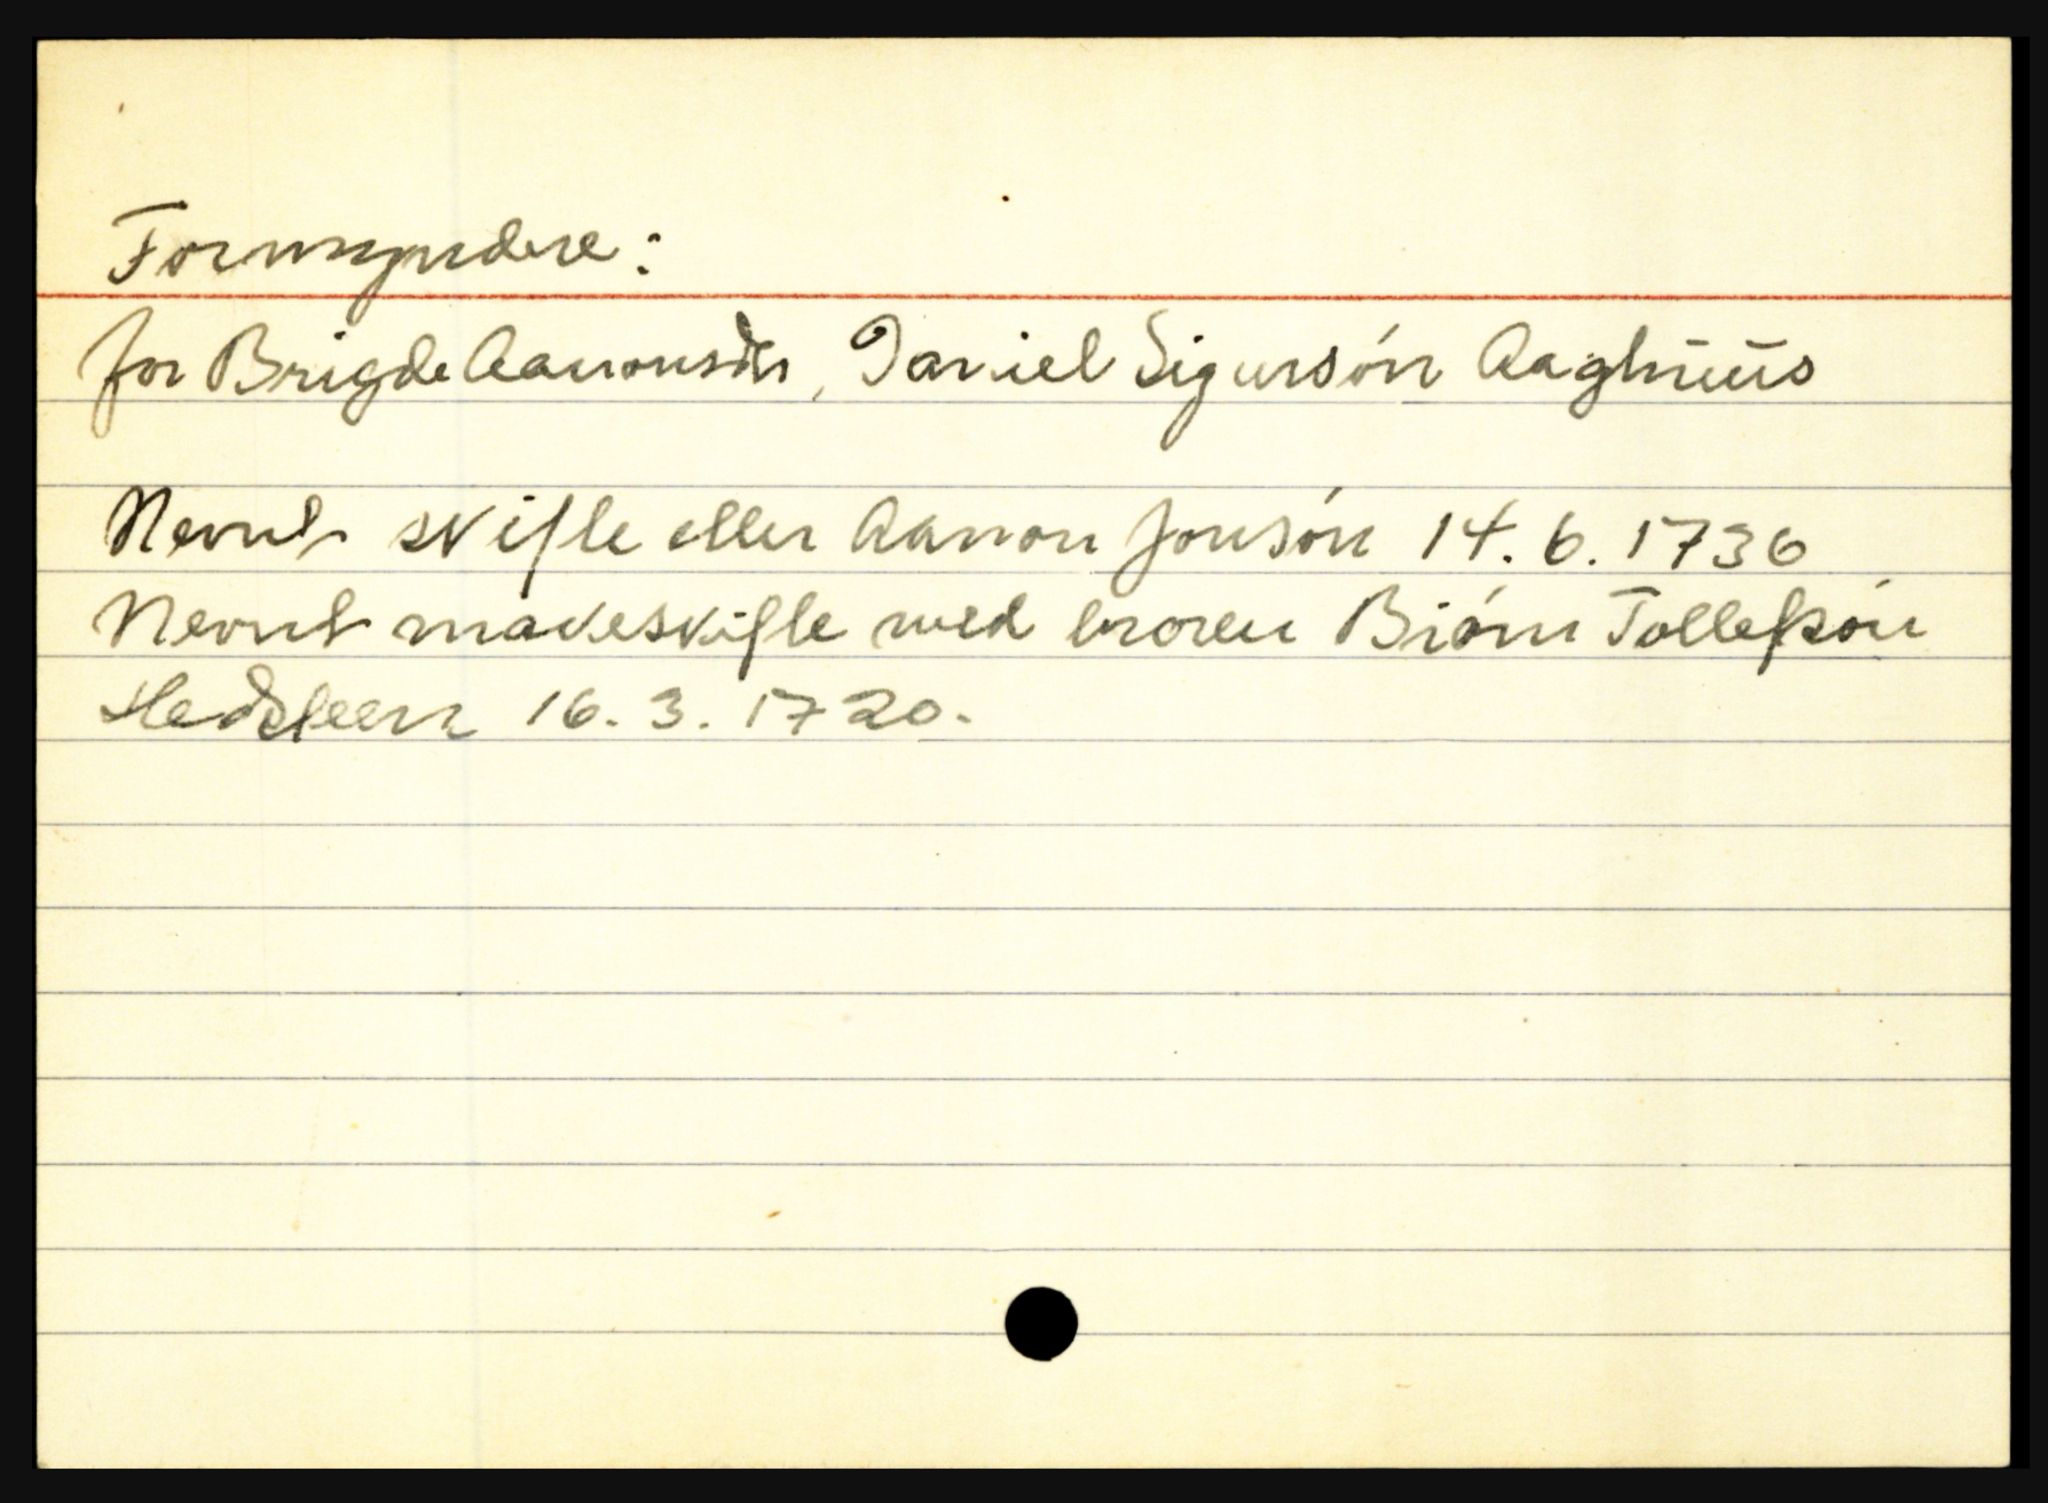 Formyndere:
for Brigde Aanonsdtr, Daniel Sigursón Aaghuus
Nevnt skifte etter Aanon Jonsón 14.6.1736
Nevnt makeskifte med broren Biórn Tollefsón
Hedsteen 16.3.1720.